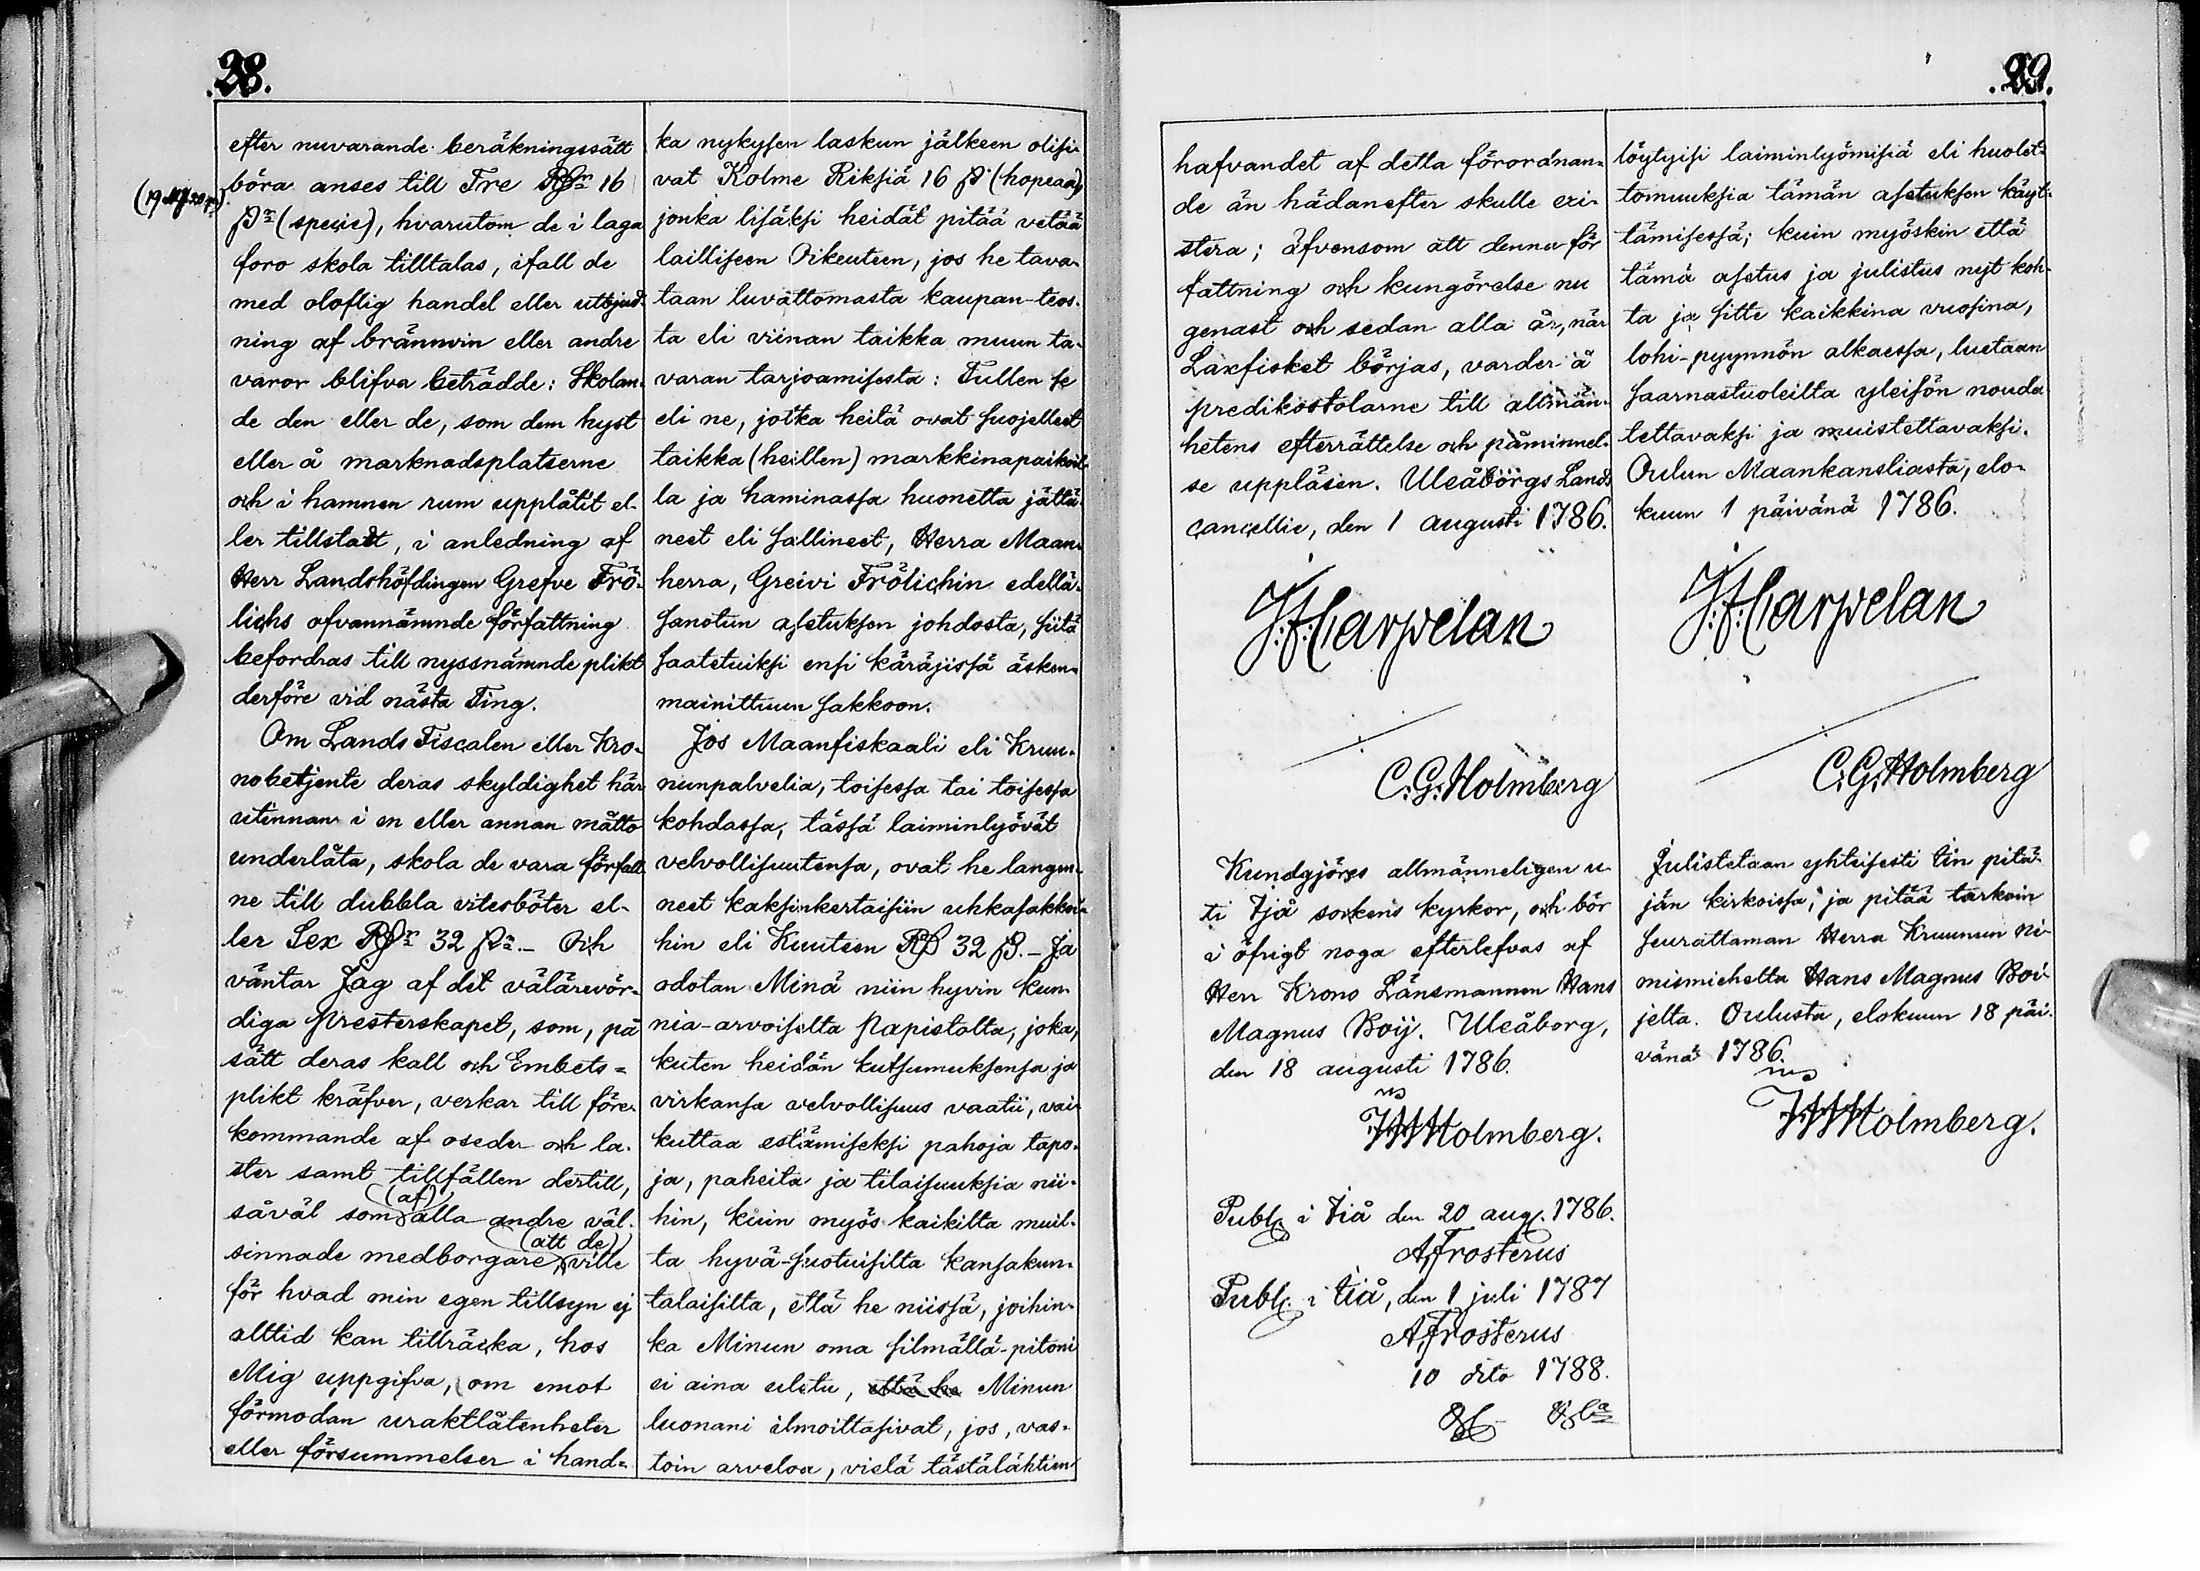 28.
efter nuvarande beräkningssätt
böra anses till Tre Rdr 16
(spesie), hvarutom de i laga
foro skola tilltalas, ifall de
med oloflig handel eller utbjud-
ning af brännvin eller andre
varor blifva beträdde: Skolan-
de den eller de, som dem hyst
eller å marknadsplatserne
och i hamnen rum upplåtit el-
ler tillstadt, i anledning af
Herr Landshöfdingen Grefve Frö-
lichs ofvannämnde författning
befordras till nyssnämnde plikt
derföre vid nästa Ting.
Om Lands Fiscalen eller Kro-
nobetjente deras skyldighet här
utinnan i en eller annan måtto
underlåta, skola de vara förfall-
ne till dubbla vitesböter el-
ler Sex Rdr 32 β. – Och
väntar Jag af det välärevör-
diga Presterskapet, som, på
sätt deras kall och Embets=
plikt kräfver, verkar till före-
kommande af oseder och la-
ster samt tillfällen dertill,
såväl som (af) alla andre väl-
sinnade medborgare, (att de) ville
för hvad min egen tillsyn ej
alltid kan tillräcka, hos
Mig uppgifva, om emot
förmodan uraktlåtenheter
eller försummelser i hand=
ka nykysen laskun jälkeen olisi-
vat Kolme Riksiä 16 β (hopeaa),
jonka lisäksi heidät pitää vetää
lailliseen Oikeuteen, jos he tava-
taan luvattomasta kaupan-teos-
ta eli viinan taikka muun ta-
varan tarjoamisesta: Tullen se
eli ne, jotka heitä ovat suojelleet
taikka (heillen) markkinapaikoil-
la ja haminassa huonetta jättä-
neet eli sallineet, Herra Maan-
herra, Greivi Frölichin edellä-
sanotun asetuksen johdosta, siitä
saatetuiksi ensi käräjissä äsken-
mainittuun sakkoon.
Jos Maanfiskaali eli Kruu-
nunpalvelia, toisessa tai toisessa
kohdassa, tässä laiminlyövät
velvollisuutensa, ovat he langen-
neet kaksinkertaisiin uhkasakkoi-
hin eli Kuuteen Rβ 32 β. – Ja
odotan Minä niin hyvin kun-
nia-arvoiselta Papistolta, joka,
kuten heidän kutsumuksensa ja
virkansa velvollisuus vaatii, vai-
kuttaa estämiseksi pahoja tapo-
ja, paheita ja tilaisuuksia nii-
hin, kuin myös kaikilta muil-
ta hyvä-suotuisilta kansakun-
talaisilta, että he niissä, joihin-
ka Minun oma silmällä-pitoni
ei aina uletu, että he Minun
luonani ilmoittasivat, jos, vas-
toin arveloa, vielä tästälähtien
29.
hafvandet af detta förordnan=
de än hädanefter skulle exi-
stera; äfvensom att denna för
fattning och kungörelse nu
genast och sedan alla år, när
Laxfisket börjas, varder å
predikostolarne till allmän-
hetens efterrättelse och påminnel-
se uppläsen. Uleåborgs Lands
cancellie, den 1 augusti 1786.
J. F. Carpelan
C. G. Holmberg
Kundgjöres allmänneligen u-
ti Ijå sockens kyrkor, och bör
i öfrigt noga efterlefvas af
Herr Krono Länsmannen Hans
Magnus Boij. Uleåborg,
den 18 augusti 1786.
Holmberg.
Publ. i Iiå den 20 aug. 1786.
A. Frosterus
Publ. i Iiå, den 1 juli 1787
A. Frosterus
10 dito 1788.
löytyisi laiminlyömisiä eli huolet=
tomuuksia tämän asetuksen käyt-
tämisessä; kuin myöskin että
tämä asetus ja julistus nyt koh-
ta ja sitte kaikkina vuosina,
lohi-pyynnön alkaessa, luetaan
saarnastuoleilta yleisön nouda
tettavaksi ja muistettavaksi.
Oulun Maankansliasta, elo-
kuun 1 päivänä 1786.
J. F. Carpelan
C. G. Holmberg
Julistetaan yhteisesti Iin pitä-
jän kirkoissa, ja pitää tarkoin
seurattaman Herra Kruunun ni-
mismieheltä Hans Magnus Boi-
jelta. Oulusta, elokuun 18 päi-
vänä 1786.
Holmberg.